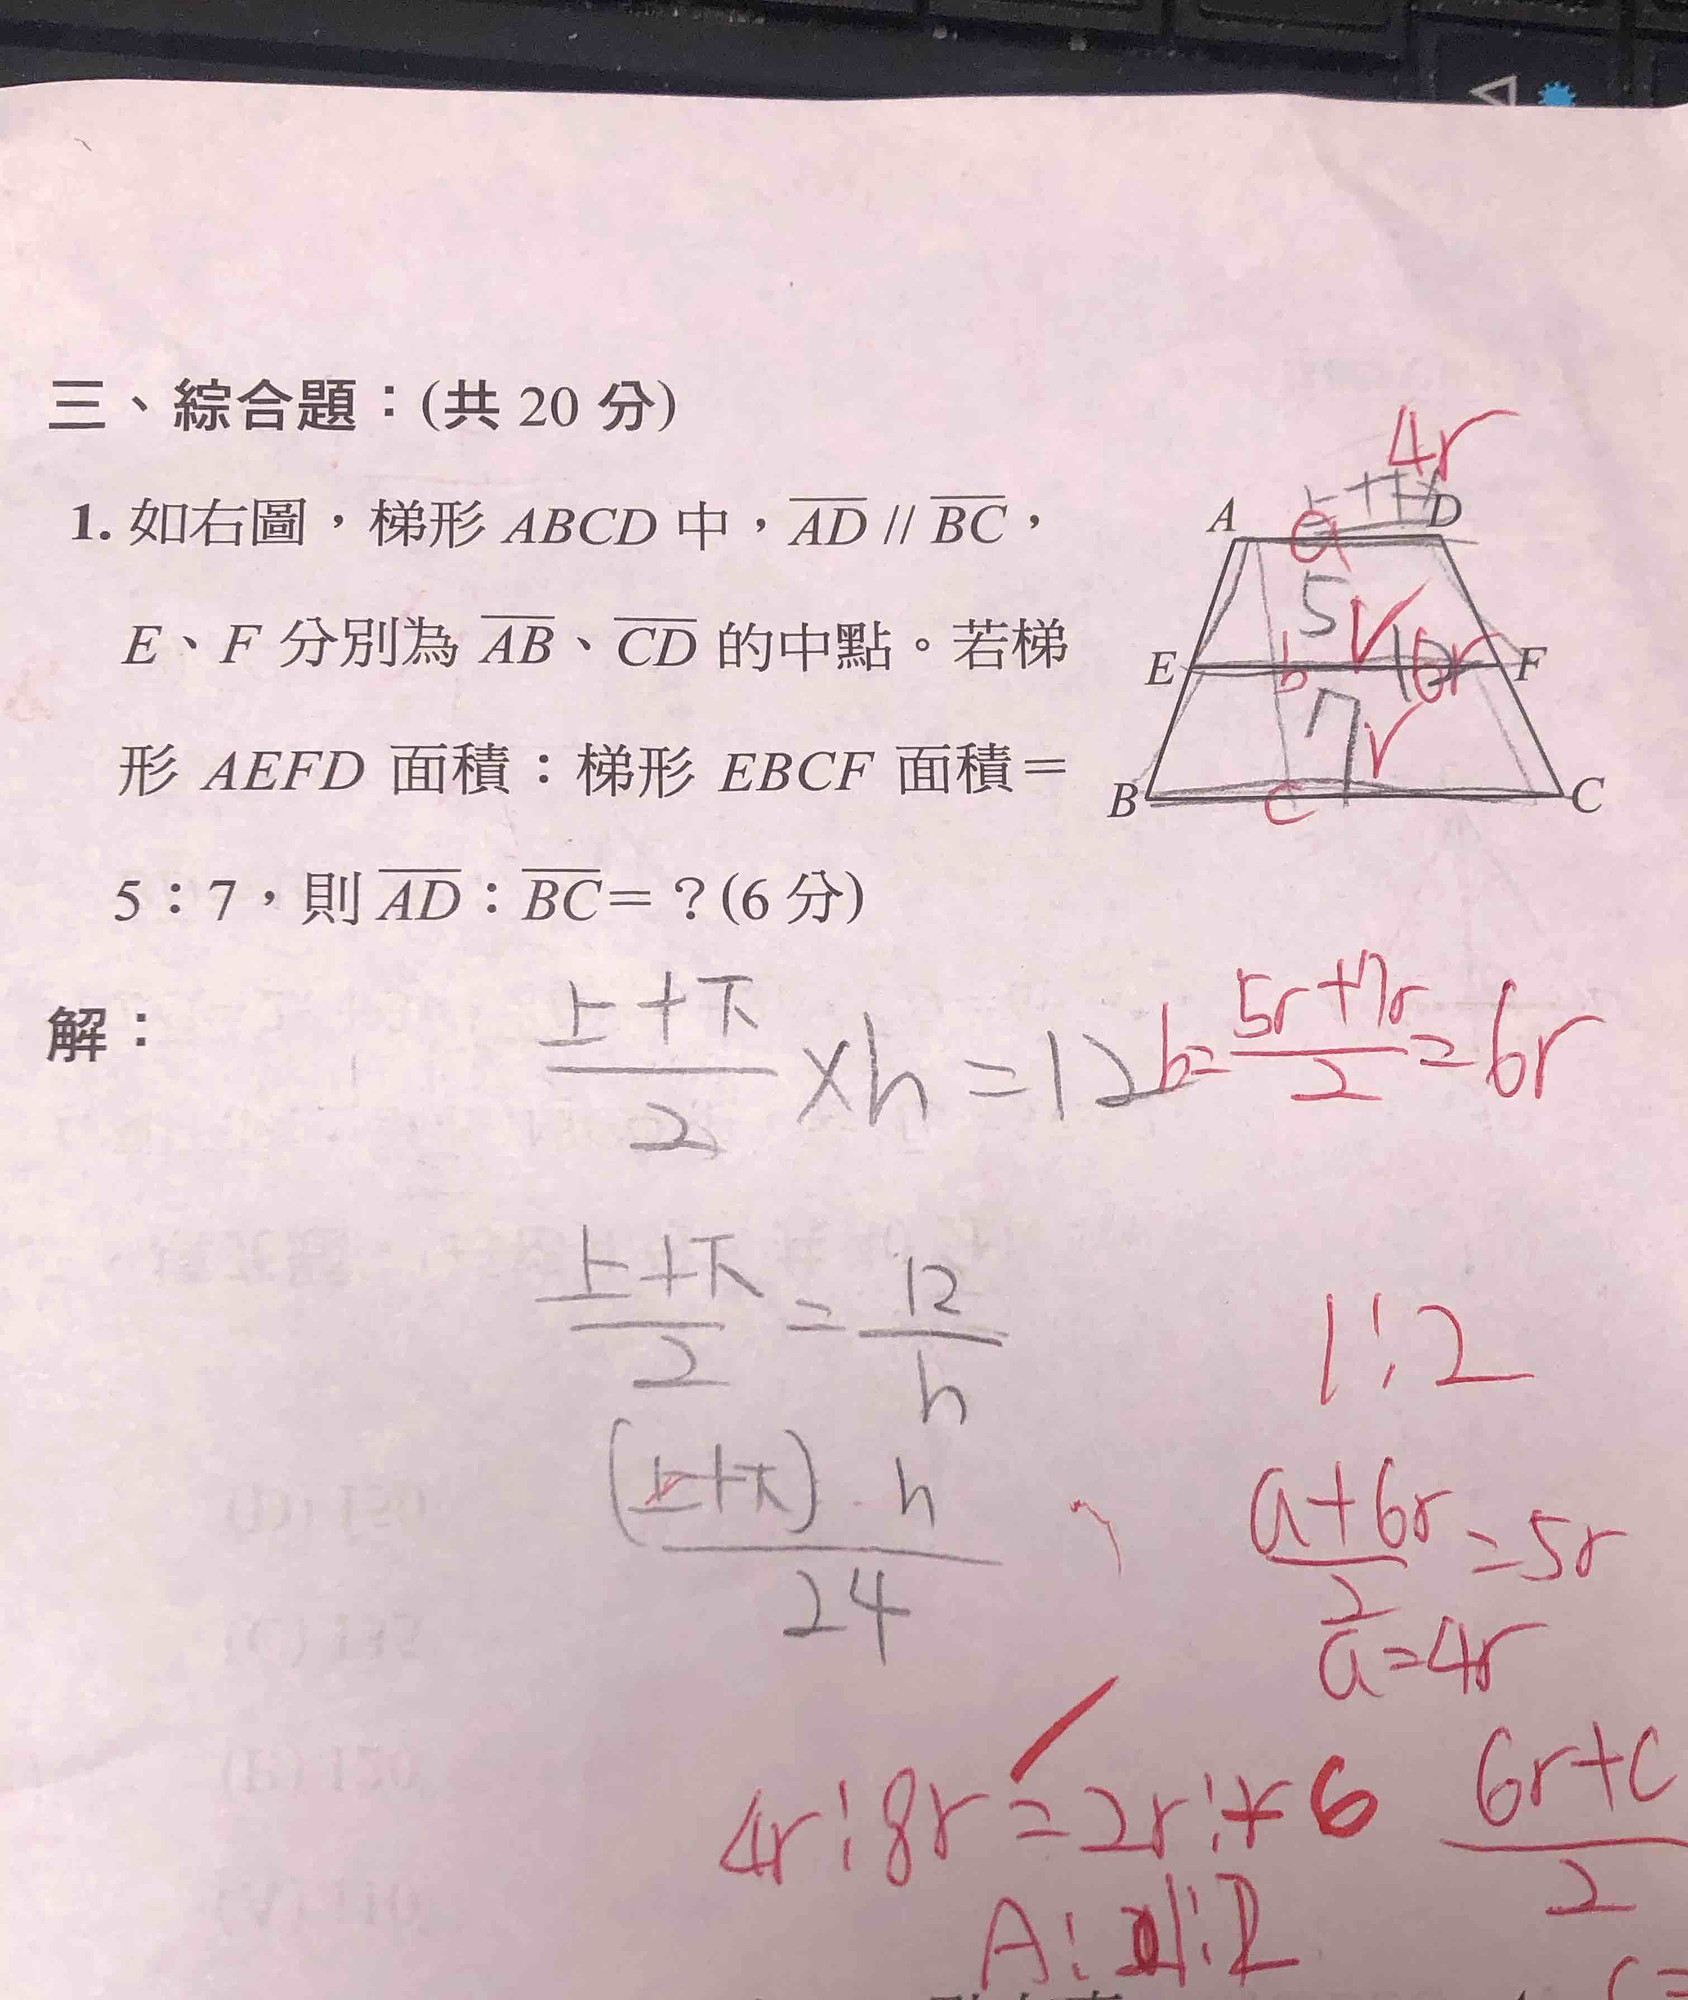 三、綜合題：(共 20 分)
4r
1. 如右圖，梯形 ABCD 中，AD // BC，
E、F 分別為 AB、CD 的中點。若梯
形 AEFD 面積：梯形 EBCF 面積＝
5：7，則 AD：BC＝？(6 分)
A D
a
5r
E b 6r F
7r
B c C
解：
上+下/2 ×h=12
b=5r+7r/2=6r
上+下/2=12/h
1:2
(上+下)·h/24
a+6r/2=5r
a=4r
4r:8r=2r:r
6
6r+c/2
A:1:2